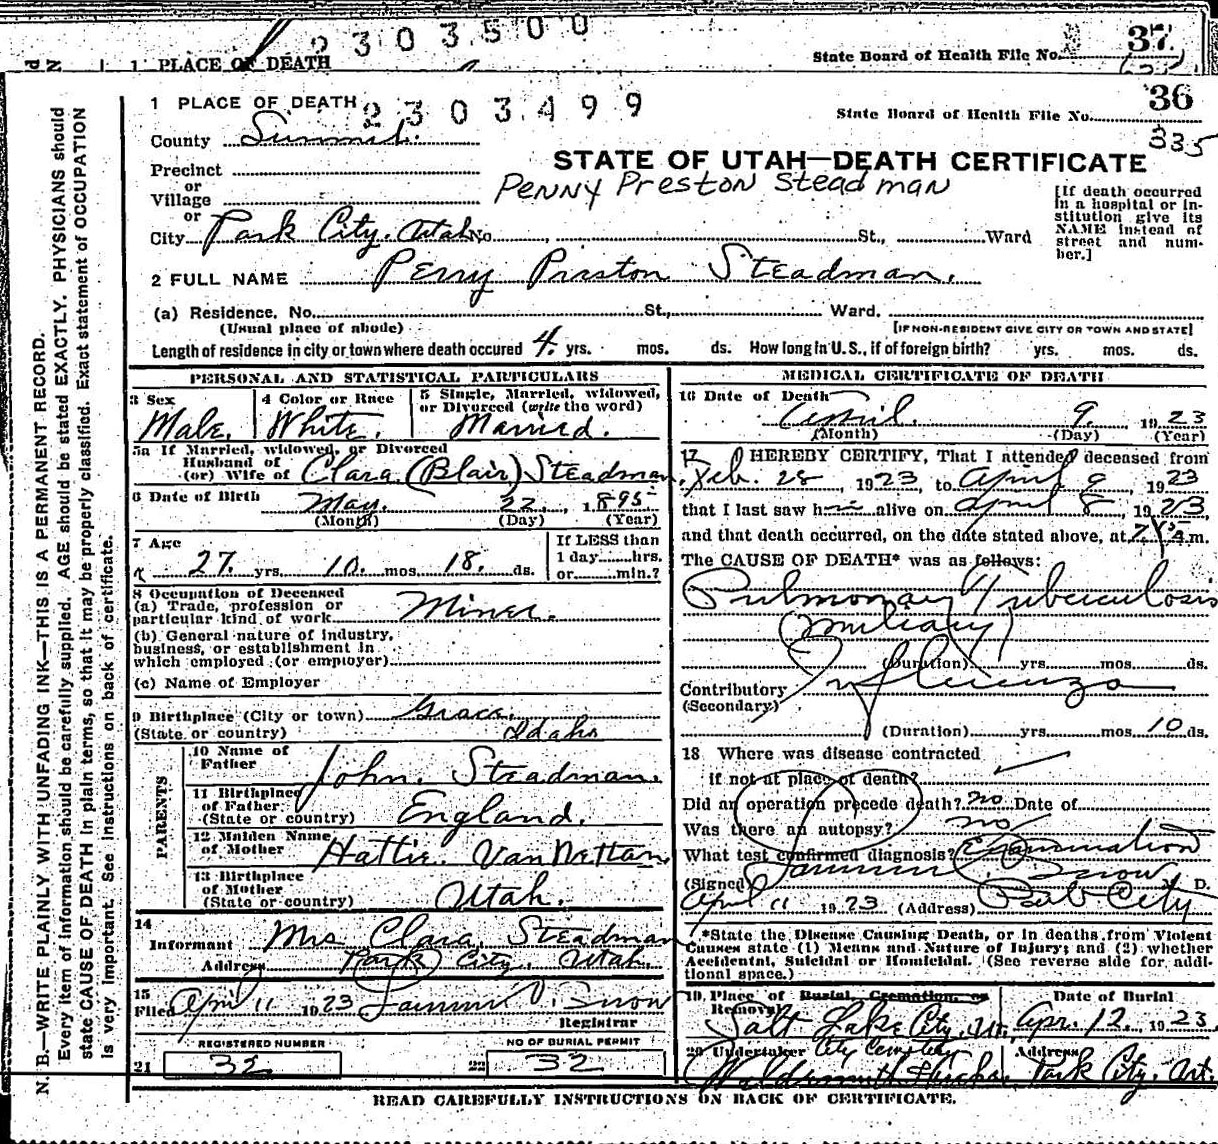 2303500
1 PLACE OF DEATH
State Board of Health File No. 37
1 PLACE OF DEATH 2303499
State Board of Health File No. 36
335
County Summit.
STATE OF UTAH—DEATH CERTIFICATE
Precinct
or
Village
PENNY PRESTON STEADMAN
[If death occurred in a hospital or institution give its NAME instead of street and number.]
or
City Park City. Utah No. , St., Ward
2 FULL NAME Perry Preston Steadman.
(a) Residence. No. St., Ward.
(Usual place of abode) [IF NON-RESIDENT GIVE CITY OR TOWN AND STATE]
Length of residence in city or town where death occured 4. yrs. mos. ds. How long in U.S., if of foreign birth? yrs. mos. ds.
PERSONAL AND STATISTICAL PARTICULARS
3 Sex
Male.
4 Color or Race
White.
5 Single, Married, widowed,
or Divorced (write the word)
Married.
5a If Married, widowed, or Divorced
Husband of
(or) Wife of Clara (Blair) Steadman
6 Date of Birth May. 22, 1895
(Month) (Day) (Year)
7 Age
27. yrs. 10. mos. 18. ds.
If LESS than
1 day......hrs.
or......min.?
8 Occupation of Deceased
(a) Trade, profession or
particular kind of work Miner.
(b) General nature of industry,
business, or establishment in
which employed (or employer)
(c) Name of Employer
9 Birthplace (City or town) Grace,
(State or country) Idaho
PARENTS
10 Name of
Father John. Steadman.
11 Birthplace
of Father
(State or country) England.
12 Maiden Name
of Mother Hattie VanNattan.
13 Birthplace
of Mother
(State or country) Utah.
14
Informant Mrs Clara Steadman
Address Park City, Utah.
15
Filed April 11 1923 Snow
Registrar
REGISTERED NUMBER
21 32
NO OF BURIAL PERMIT
22 32
MEDICAL CERTIFICATE OF DEATH
16 Date of Death
April. 9. 1923
(Month) (Day) (Year)
17 I HEREBY CERTIFY, That I attended deceased from
Feb. 28, 1923, to April 9, 1923
that I last saw him alive on April 8, 1923
and that death occurred, on the date stated above, at m.
The CAUSE OF DEATH* was as follows:
Pulmonary Tuberculosis
(miliary)
(Duration) yrs. mos. ds.
Contributory Influenza
(Secondary)
(Duration) yrs. mos. 10 ds.
18 Where was disease contracted
if not at place of death?
Did an operation precede death? no Date of
Was there an autopsy? no
What test confirmed diagnosis? Examination
(Signed) Snow M. D.
April 11 1923 (Address) Park City
*State the Disease Causing Death, or in deaths from Violent
Causes state (1) Means and Nature of Injury; and (2) whether
Accidental, Suicidal or Homicidal. (See reverse side for addi-
tional space.)
19 Place of Burial, Cremation, or
Removal
Salt Lake City, Ut.
City Cemetery
Date of Burial
Apr. 12. 1923
20 Undertaker
Address
Park City. Ut.
READ CAREFULLY INSTRUCTIONS ON BACK OF CERTIFICATE.
N. B.—WRITE PLAINLY WITH UNFADING INK—THIS IS A PERMANENT RECORD.
Every item of information should be carefully supplied. AGE should be stated EXACTLY. PHYSICIANS should
state CAUSE OF DEATH in plain terms, so that it may be properly classified. Exact statement of OCCUPATION
is very important. See instructions on back of certificate.